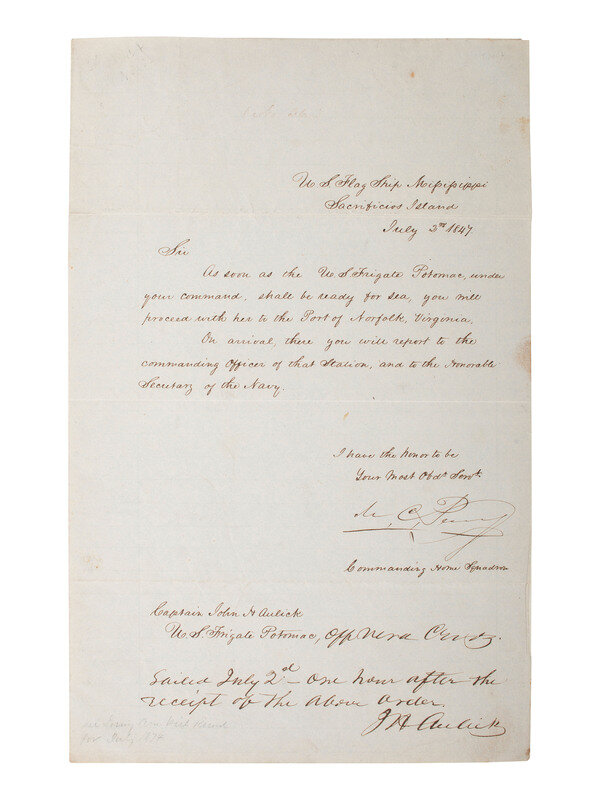 U S Flag Ship Mississippi
Sacrificios Island
July 2nd 1847.
Sir
As soon as the U. S. Frigate Potomac, under
your command, shall be ready for sea, you will
proceed with her to the Port of Norfolk, Virginia.
On arrival, there you will report to the
commanding Officer of that Station, and to the Honorable
Secretary of the Navy.
I have the honor to be
Your Most Obdt Servt.
M. C. Perry
Commanding Home Squadron
Captain John H Aulick
U. S. Frigate Potomac, off Vera Cruz.
Sailed July 2d — one hour after the
receipt of the above order.
J H Aulick
for July